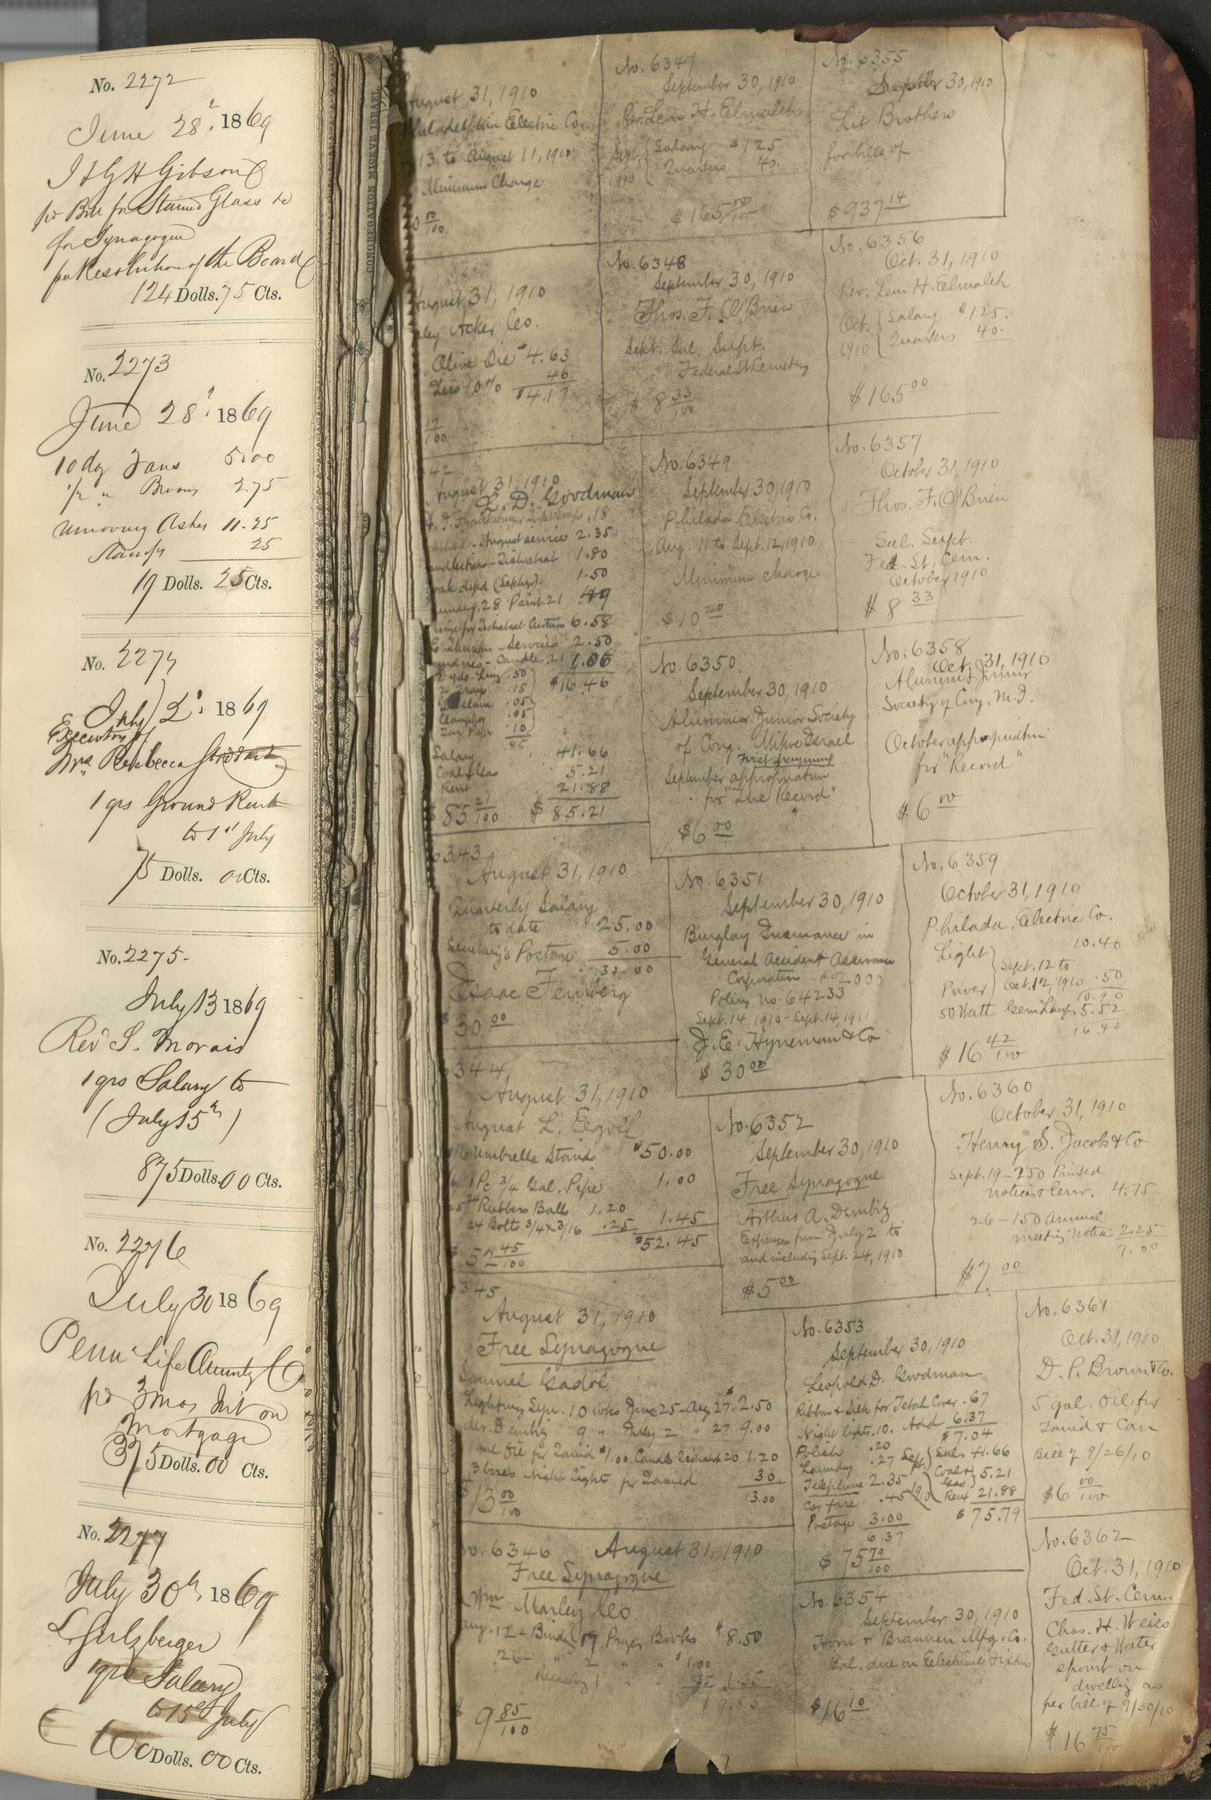 No. 2272
June 28th, 1869
J & G H Gibson
for Bill for Stained Glass &c
for Synagogue
per Resolution of the Board
124 Dolls. 75 Cts.
No. 2273
June 28th, 1869
10 dz Fans 5.00
1/2 " Brooms 2.75
removing Ashes 11.25
Stamps 25
19 Dolls. 25 Cts.
No. 2274
July 2d, 1869
Executors of
Mrs. Rebecca
1 qrs Ground Rent
to 1st July
75 Dolls. 00 Cts.
No. 2275-
July 13 1869
Revd S. Morais
1 qrs Salary to
(July 15th)
875 Dolls. 00 Cts.
No. 2276
July 30 1869
Penn Life Annuity Co
for 3 Mos Int on
Mortgage
375 Dolls. 00 Cts.
No. 2277
July 30th, 1869
L Sulzberger
1 qrs Salary
to 15th July
100 Dolls. 00 Cts.
CONGREGATION MICKVE ISRAEL
August 31, 1910
Philadelphia Electric Co.
13 to August 11, 1910
Minimum Charge
August 31, 1910
Acker Co.
Olive Oil $4.63
Less 10% 46
$4.17
17/100
42
August 31, 1910
L. D. Goodman
August service 2.35
1.80
1.50
49
6.58
Services 2.50
Candle
$16.46
.50
.15
.05
.05
.10
.85
Salary 41.66
Coal & Gas 5.21
Rent 21.88
$85 21/100 $85.21
6343
August 31, 1910
Quarterly Salary
to date 25.00
Secretary's Postage 5.00
30.00
Isaac Feinberg
$30 00
344
August 31, 1910
August L.
Umbrella Stands $50.00
1 Pc 3/4 Gal. Pipe 1.00
Rubber Balls 1.20
24 Bolts 3/4 x 3/16 .25 1.45
$52.45
$52 45/100
345
August 31, 1910
Free Synagogue
Samuel Gadol
Lighting Syn. 10 wks June 25-Aug 27 $2.50
Mr. Dembitz 9 " July 2 " 27 9.00
gal Oil for Tamid $1.00 Candles 20 1.20
3 boxes Night Lights for Tamid 30
13.00
$13 00/100
No. 6346 August 31, 1910
Free Synagogue
Wm Marley Co.
Aug. 12 - Bind 17 Prayer Books $8.50
26 " 2 " " $1.00
$9 85/100
No. 6347
September 30, 1910
Rev. Leon H. Elmaleh
Sept. 1910 { Salary $125
Quarters 40.
$165 00/100
No. 6348
September 30, 1910
Thos. F. O'Brien
Sept. Sal. Supt.
Federal St Cemetery
$8 33/100
No. 6349
September 30, 1910
Philada Electric Co.
Aug. 11 to Sept. 12, 1910
Minimum charge
$10 20
No. 6350
September 30, 1910
Alumni Junior Society
of Cong. Mikve Israel
First payment
September appropriation
for "The Record"
$6 00
No. 6351
September 30, 1910
Burglary Insurance in
General Accident Assurance
Corporation - $2000
Policy No. 64233
Sept. 14, 1910 - Sept. 14, 1911
J. E. Hyneman & Co
$30 00
No. 6352
September 30, 1910
Free Synagogue
Arthur A. Dembitz
Expenses from July 2 to
and including Sept. 24, 1910
$5 00
No. 6353
September 30, 1910
Leopold D. Goodman
Ribbon & Silk for Tebah Cover .67
Night lights .10. Add 6.37
$7.04
Polish .20
Laundry .27
Telephone 2.35
Car fare .45
Postage 3.00
6.37
Sept. 1910 { Sal. 41.66
Coal & Gas 5.21
Rent 21.88
$75.79
$75 79/100
No. 6354
September 30, 1910
Horn & Brannen Mfg. Co.
Bal. due on Electrical Fixtures
$16 10
No. 6355
September 30, 1910
Lit Brothers
for bills of
$937 14
No. 6356
Oct. 31, 1910
Rev. Leon H. Elmaleh
Oct. 1910 { Salary $125.
Quarters 40.
$165 00
No. 6357
October 31, 1910
Thos. F. O'Brien
Sal. Supt.
Fed. St. Cem.
October 1910
$8 33
No. 6358
Oct. 31, 1910
Alumni Junior
Society of Cong. M. I.
October appropriation
for "Record"
$6 00
No. 6359
October 31, 1910
Philada. Electric Co.
Light } 10.40
Power } Sept. 12 to Oct. 12, 1910 .50
10.90
50 Watt Gem Lamps 5.52
16.42
$16 42/100
No. 6360
October 31, 1910
Henry S. Jacobs & Co
Sept. 19 - 250 Printed
notices & Env. 4.75
26 - 150 Annual
meeting Notices 2.25
7.00
$7. 00
No. 6361
Oct. 31, 1910
D. P. Brown & Co.
5 gal. Oil for
Tamid & Can
Bill of 9/26/10
$6 00/100
No. 6362
Oct. 31, 1910
Fed. St. Cem.
Chas. H. Weiss
Gutter & Water
spout on
dwelling as
per bill of 9/30/10
$16 75/100